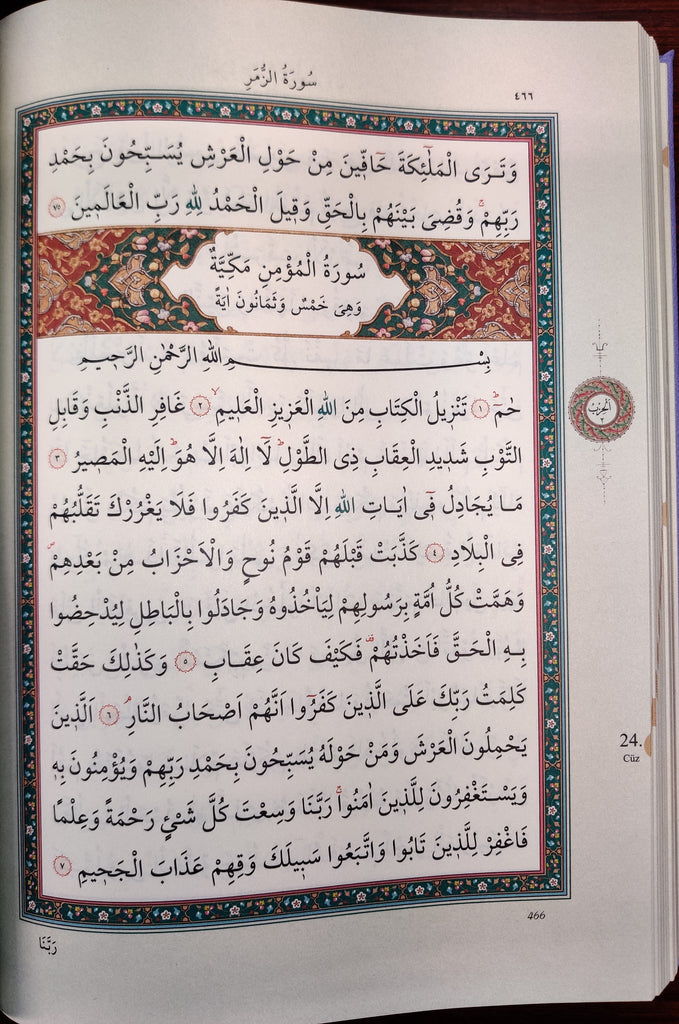 سُورَةُ الزُّمَرِ
٤٦٦
وَتَرَى الْمَلٰٓئِكَةَ حَٓافّ۪ينَ مِنْ حَوْلِ الْعَرْشِ يُسَبِّحُونَ بِحَمْدِ
رَبِّهِمْۚ وَقُضِيَ بَيْنَهُمْ بِالْحَقِّ وَق۪يلَ الْحَمْدُ لِلّٰهِ رَبِّ الْعَالَم۪ينَ ٧٥
سُورَةُ الْمُؤْمِنِ مَكِّيَّةٌ
وَهِيَ خَمْسٌ وَثَمَانُونَ اٰيَةً
بِسْمِ اللّٰهِ الرَّحْمٰنِ الرَّح۪يمِ
حٰمٓۜ ١ تَنْز۪يلُ الْكِتَابِ مِنَ اللّٰهِ الْعَز۪يزِ الْعَل۪يمِۙ ٢ غَافِرِ الذَّنْبِ وَقَابِلِ
التَّوْبِ شَد۪يدِ الْعِقَابِ ذِي الطَّوْلِۜ لَٓا اِلٰهَ اِلَّا هُوَۜ اِلَيْهِ الْمَص۪يرُ ٣
مَا يُجَادِلُ ف۪ٓي اٰيَاتِ اللّٰهِ اِلَّا الَّذ۪ينَ كَفَرُوا فَلَا يَغْرُرْكَ تَقَلُّبُهُمْ
فِي الْبِلَادِ ٤ كَذَّبَتْ قَبْلَهُمْ قَوْمُ نُوحٍ وَالْاَحْزَابُ مِنْ بَعْدِهِمْۖ
وَهَمَّتْ كُلُّ اُمَّةٍ بِرَسُولِهِمْ لِيَأْخُذُوهُ وَجَادَلُوا بِالْبَاطِلِ لِيُدْحِضُوا
بِهِ الْحَقَّ فَاَخَذْتُهُمْ۠ فَكَيْفَ كَانَ عِقَابِ ٥ وَكَذٰلِكَ حَقَّتْ
كَلِمَتُ رَبِّكَ عَلَى الَّذ۪ينَ كَفَرُٓوا اَنَّهُمْ اَصْحَابُ النَّارِۢ ٦ اَلَّذ۪ينَ
يَحْمِلُونَ الْعَرْشَ وَمَنْ حَوْلَهُ يُسَبِّحُونَ بِحَمْدِ رَبِّهِمْ وَيُؤْمِنُونَ بِه۪
وَيَسْتَغْفِرُونَ لِلَّذ۪ينَ اٰمَنُواۚ رَبَّنَا وَسِعْتَ كُلَّ شَيْءٍ رَحْمَةً وَعِلْمًا
فَاغْفِرْ لِلَّذ۪ينَ تَابُوا وَاتَّبَعُوا سَب۪يلَكَ وَقِهِمْ عَذَابَ الْجَح۪يمِ ٧
اَلْحِزْبُ
24.
Cüz
466
رَبَّنَا